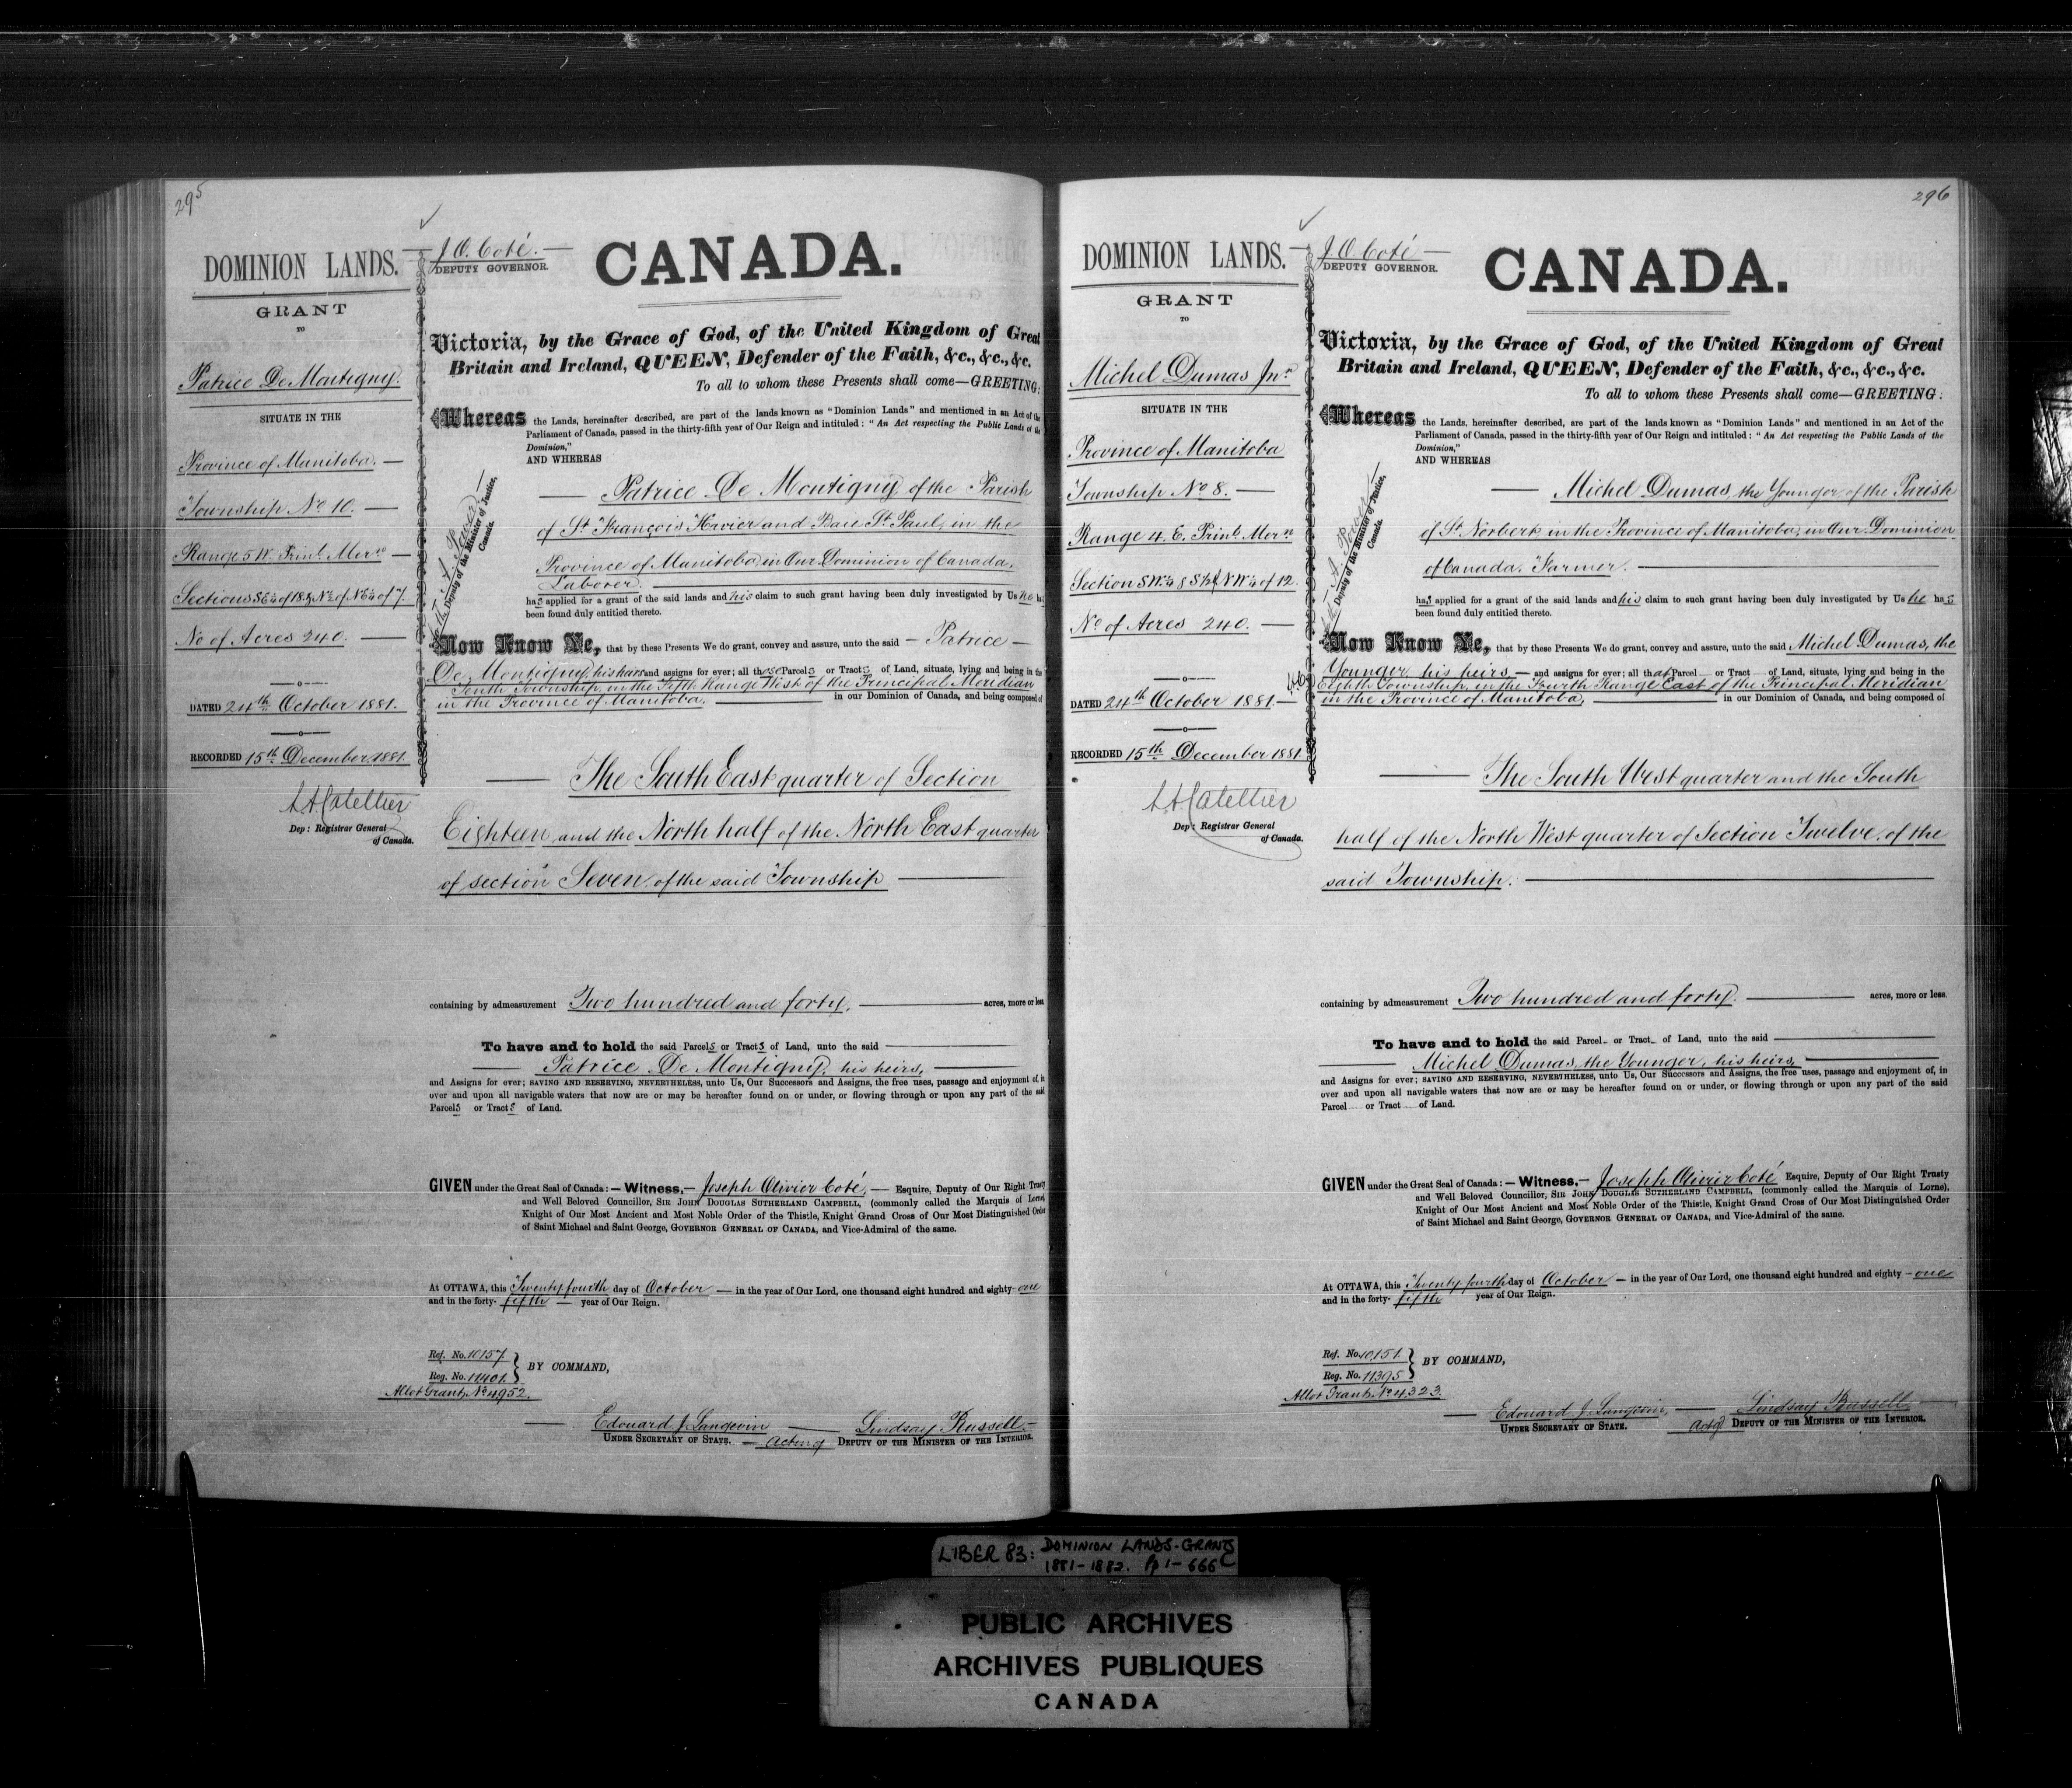 295
DOMINION LANDS.
GRANT
TO
Patrice De Montigny.
SITUATE IN THE
Province of Manitoba. —
Township No 10. —
Range 5 W. Prinl. Mern —
Sections S E¼ of 18 & N½ of N E¼ of 7.
No of Acres 240. —
DATED 24th October 1881.
RECORDED 15th December 1881.
Dep: Registrar General
of Canada.
J. O. Coté. —
DEPUTY GOVERNOR.
CANADA.
Victoria, by the Grace of God, of the United Kingdom of Great
Britain and Ireland, QUEEN, Defender of the Faith, &c., &c., &c.
To all to whom these Presents shall come—GREETING:
Whereas the Lands, hereinafter described, are part of the lands known as "Dominion Lands" and mentioned in an Act of the
Parliament of Canada, passed in the thirty-fifth year of Our Reign and intituled: "An Act respecting the Public Lands of the
Dominion,"
AND WHEREAS
Deputy of the Minister of Justice,
Canada.
— Patrice De Montigny of the Parish
of St François Xavier and Baie St. Paul, in the
Province of Manitoba in Our Dominion of Canada,
Laborer. —
has applied for a grant of the said lands and his claim to such grant having been duly investigated by Us he ha
been found duly entitled thereto.
Now Know Ye, that by these Presents We do grant, convey and assure, unto the said — Patrice —
De Montigny, his heirs and assigns for ever; all those Parcels or Tracts of Land, situate, lying and being in the
Tenth Township, in the Fifth Range West of the Principal Meridian
in the Province of Manitoba, — in our Dominion of Canada, and being composed of
— The South East quarter of Section
Eighteen and the North half of the North East quarter
of section Seven, of the said Township —
containing by admeasurement Two hundred and forty, — acres, more or less
To have and to hold the said Parcels or Tracts of Land, unto the said —
— Patrice De Montigny, his heirs, —
and Assigns for ever; SAVING AND RESERVING, NEVERTHELESS, unto Us, Our Successors and Assigns, the free uses, passage and enjoyment of, in
over and upon all navigable waters that now are or may be hereafter found on or under, or flowing through or upon any part of the said
Parcels or Tracts of Land.
GIVEN under the Great Seal of Canada: — Witness, — Joseph Olivier Coté, — Esquire, Deputy of Our Right Trusty
and Well Beloved Councillor, SIR JOHN DOUGLAS SUTHERLAND CAMPBELL, (commonly called the Marquis of Lorne),
Knight of Our Most Ancient and Most Noble Order of the Thistle, Knight Grand Cross of Our Most Distinguished Order
of Saint Michael and Saint George, GOVERNOR GENERAL OF CANADA, and Vice-Admiral of the same.
At OTTAWA, this Twenty fourth day of October — in the year of Our Lord, one thousand eight hundred and eighty-one
and in the forty-fifth — year of Our Reign.
Ref. No. 10157.
Reg. No. 11401.
BY COMMAND,
Allot Grant, No 4952.
— Edouard J. Langevin — Lindsay Russell —
UNDER SECRETARY OF STATE. — Acting DEPUTY OF THE MINISTER OF THE INTERIOR.
296
DOMINION LANDS. —
GRANT
TO
Michel Dumas Jnr
SITUATE IN THE
Province of Manitoba
Township No 8. —
Range 4. E. Prinl. Mern
Section S W¼ & S½ of N W¼ of 12.
No of Acres 240. —
DATED 24th October 1881. —
RECORDED 15th December 1881.
Dep: Registrar General
of Canada.
J O Coté —
DEPUTY GOVERNOR.
CANADA.
Victoria, by the Grace of God, of the United Kingdom of Great
Britain and Ireland, QUEEN, Defender of the Faith, &c., &c., &c.
To all to whom these Presents shall come—GREETING:
Whereas the Lands, hereinafter described, are part of the lands known as "Dominion Lands" and mentioned in an Act of the
Parliament of Canada, passed in the thirty-fifth year of Our Reign and intituled: "An Act respecting the Public Lands of the
Dominion,"
AND WHEREAS
Deputy of the Minister of Justice,
Canada.
— Michel Dumas, the Younger of the Parish
of St Norbert in the Province of Manitoba, in Our Dominion
of Canada. Farmer. —
has applied for a grant of the said lands and his claim to such grant having been duly investigated by Us he has
been found duly entitled thereto.
Now Know Ye, that by these Presents We do grant, convey and assure, unto the said Michel Dumas, the
Younger, his heirs, — and assigns for ever; all that Parcel — or Tract — of Land, situate, lying and being in the
Eighth Township, in the Fourth Range East of the Principal Meridian
in the Province of Manitoba, — in our Dominion of Canada, and being composed of
— The South West quarter and the South
half of the North West quarter of Section Twelve, of the
said Township. —
containing by admeasurement Two hundred and forty. — acres, more or less
To have and to hold the said Parcel — or Tract — of Land, unto the said —
— Michel Dumas, the Younger, his heirs, —
and Assigns for ever; SAVING AND RESERVING, NEVERTHELESS, unto Us, Our Successors and Assigns, the free uses, passage and enjoyment of, in
over and upon all navigable waters that now are or may be hereafter found on or under, or flowing through or upon any part of the said
Parcel — or Tract — of Land.
GIVEN under the Great Seal of Canada: — Witness, — Joseph Olivier Coté Esquire, Deputy of Our Right Trusty
and Well Beloved Councillor, SIR JOHN DOUGLAS SUTHERLAND CAMPBELL, (commonly called the Marquis of Lorne),
Knight of Our Most Ancient and Most Noble Order of the Thistle, Knight Grand Cross of Our Most Distinguished Order
of Saint Michael and Saint George, GOVERNOR GENERAL OF CANADA, and Vice-Admiral of the same.
At OTTAWA, this Twenty fourth day of October — in the year of Our Lord, one thousand eight hundred and eighty-one
and in the forty-fifth year of Our Reign.
Ref. No. 10151.
Reg. No. 11395
BY COMMAND,
Allot Grant, No 4323.
— Edouard J. Langevin, — Lindsay Russell
UNDER SECRETARY OF STATE. Actg DEPUTY OF THE MINISTER OF THE INTERIOR.
LIBER 83: DOMINION LANDS-GRANTS
1881-1882. Pp 1-666
PUBLIC ARCHIVES
ARCHIVES PUBLIQUES
CANADA